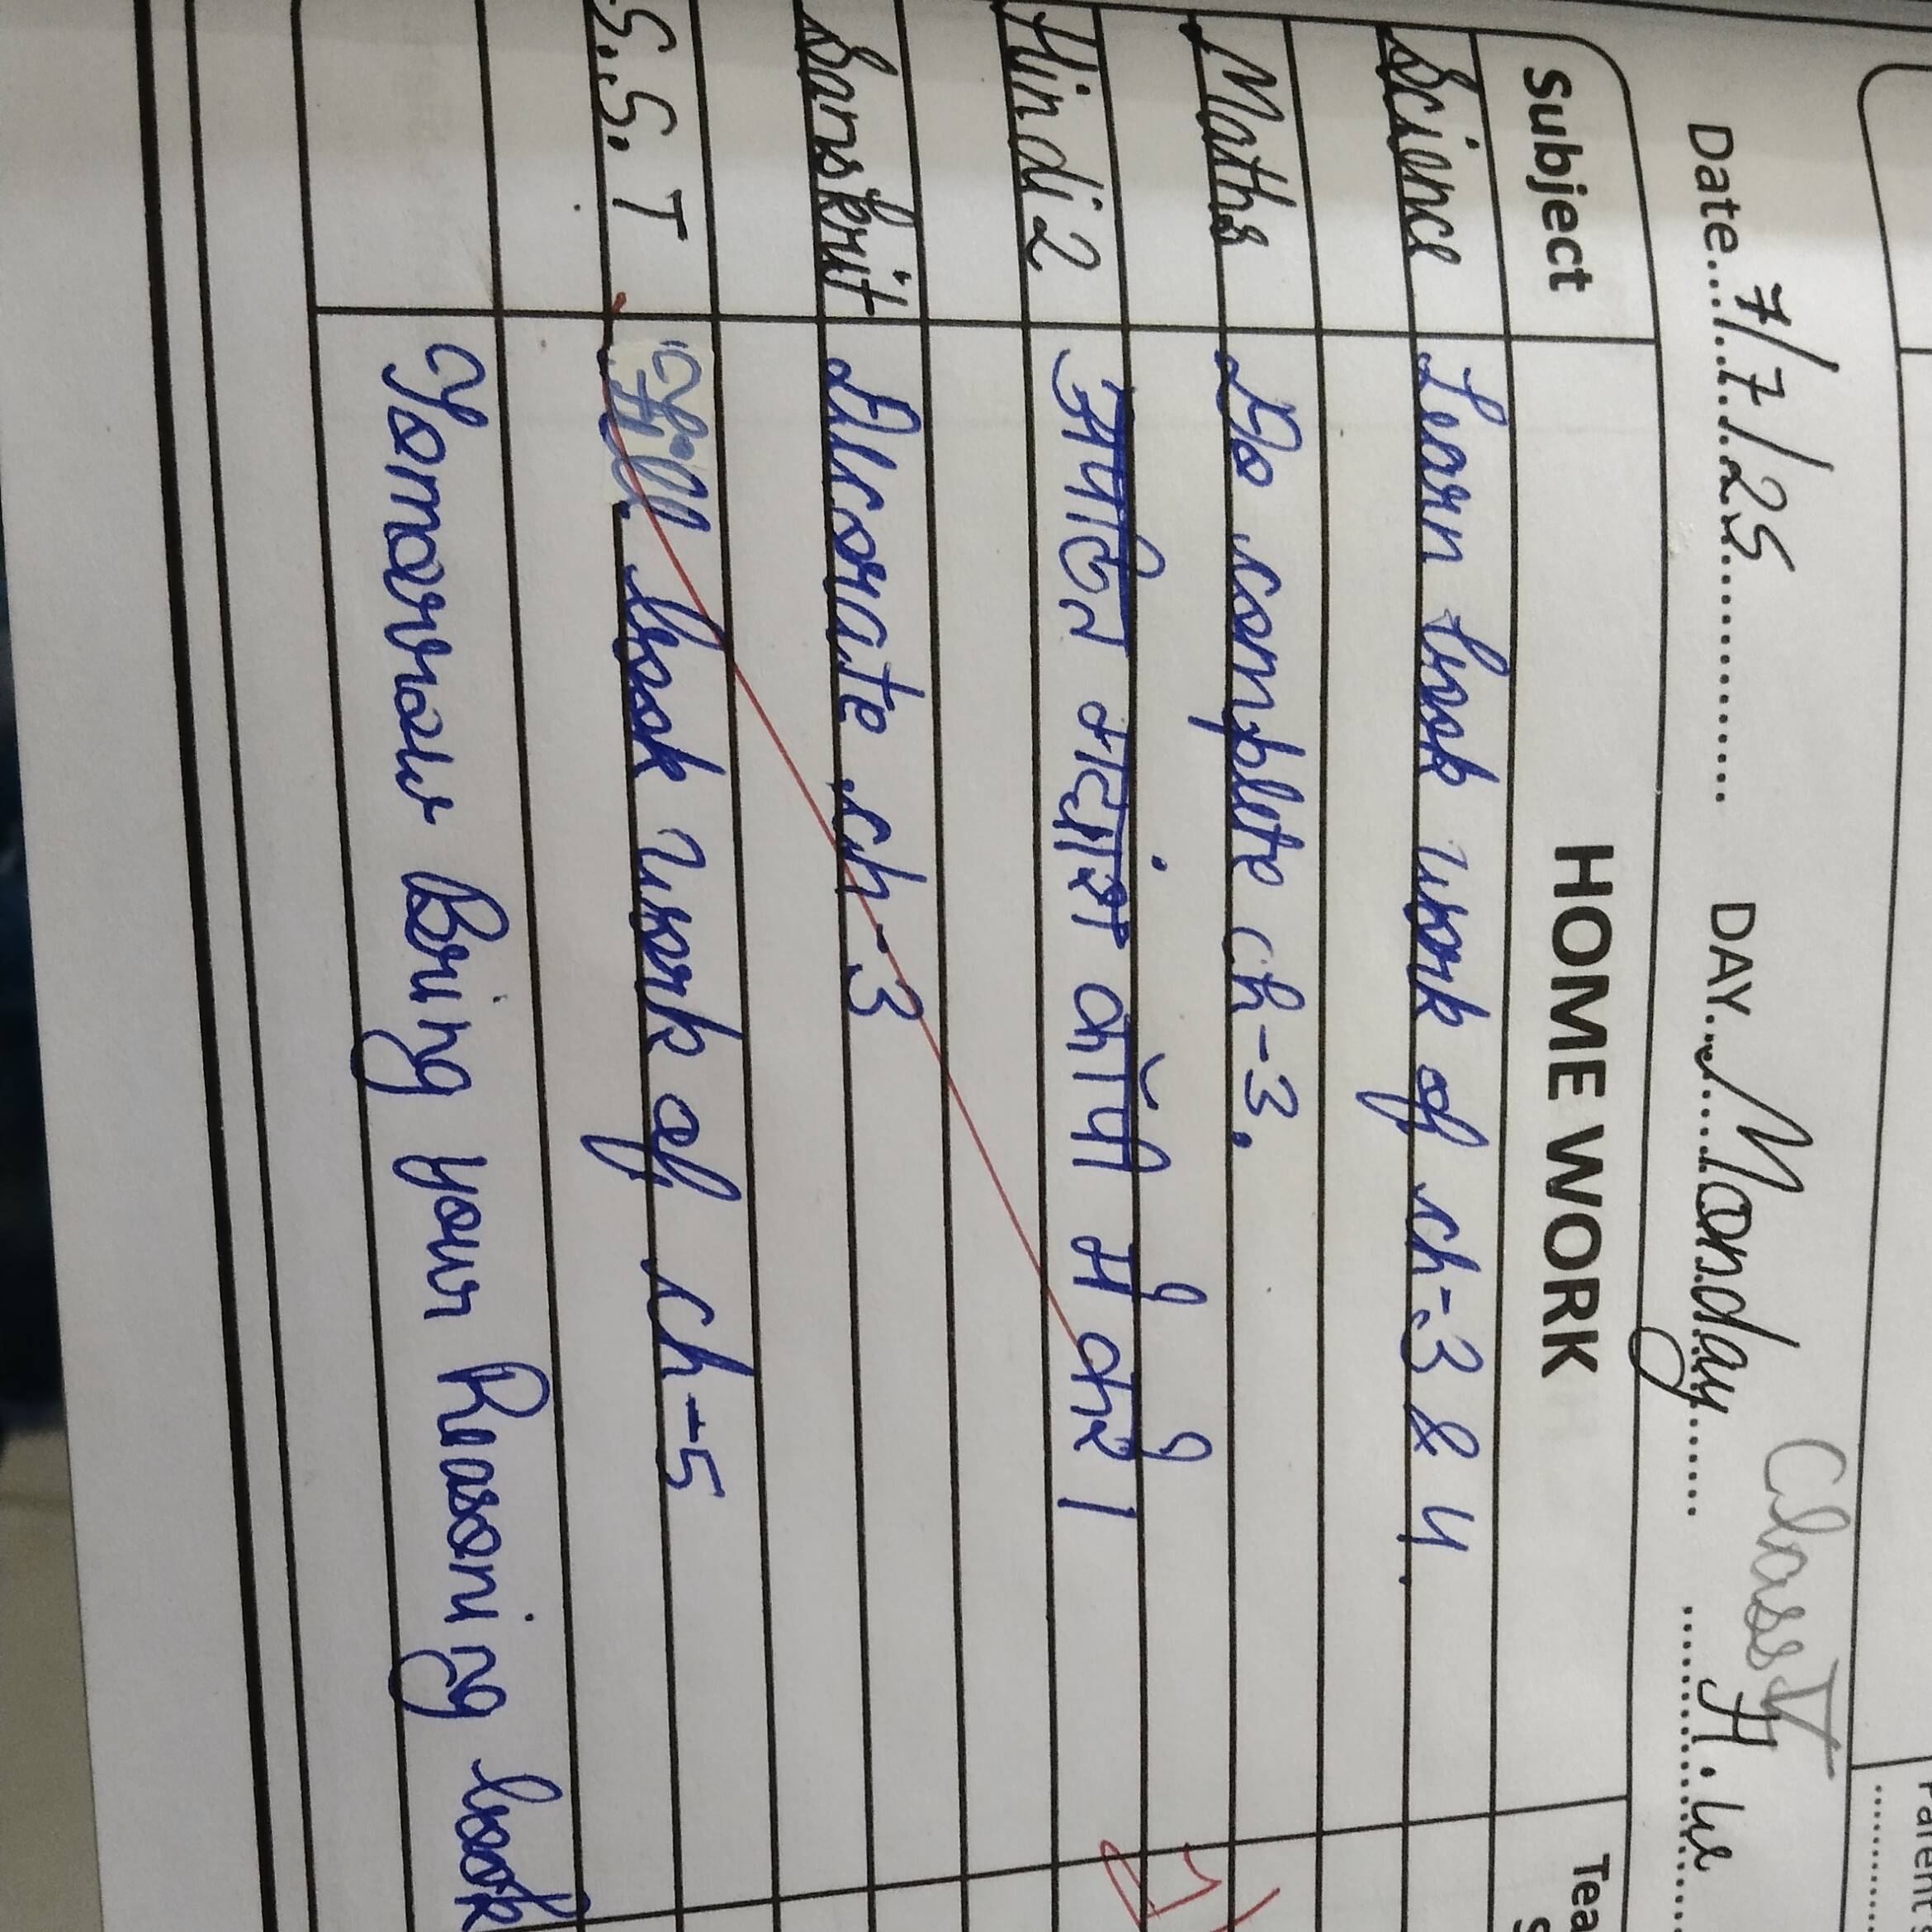 Date..7/7/25.......... DAY...Monday...... H.w
Class V
Subject HOME WORK
Science Learn book work of ch-3 & 4.
Maths Do complete ch-3.
Hindi 2 अपठित गद्यांश कॉपी में करें।
Sanskrit Dlcorate ch-3
S.S.T Fill book work of ch-5
Yomorrow Bring your Reasoning book